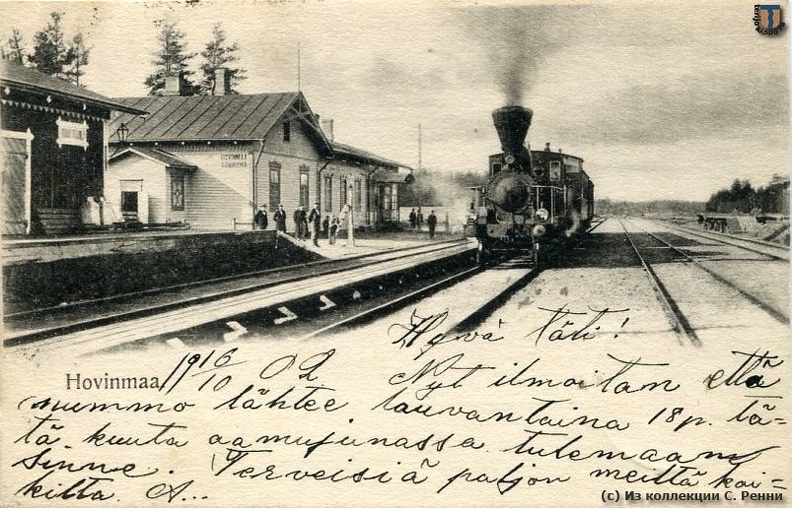 HOVINMAA
Hyvä täti!
Hovinmaa 19 16/10 02 Nyt ilmoitan että
mummo lähtee lauvantaina 18 p. tä-
tä kuuta aamujunassa tulemaan
sinne. Terveisiä paljon meiltä kai-
kilta. A...
(c) Из коллекции С. Ренни